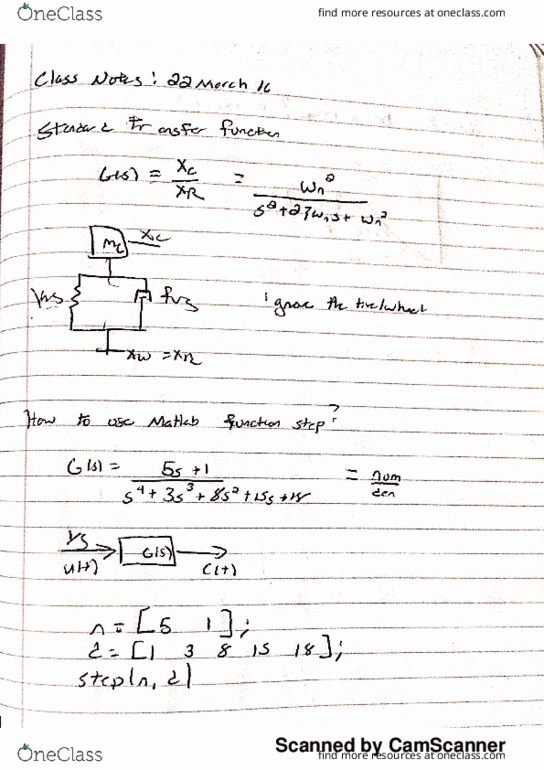 OneClass
find more resources at oneclass.com
Class Notes: 22 March 16
Standard Transfer function
G(s) = Xc/XR = ωn²/(s²+2ζωns+ωn²)
Mc Xc
Ks fv3
ignore the tire/wheel
Xw = XR
How to use Matlab function step?
G(s) = (5s+1)/(s⁴+3s³+8s²+15s+18) = num/den
1/s
u(t) G(s) C(t)
n = [5 1];
d = [1 3 8 15 18];
step(n, d)
Scanned by CamScanner
OneClass
find more resources at oneclass.com